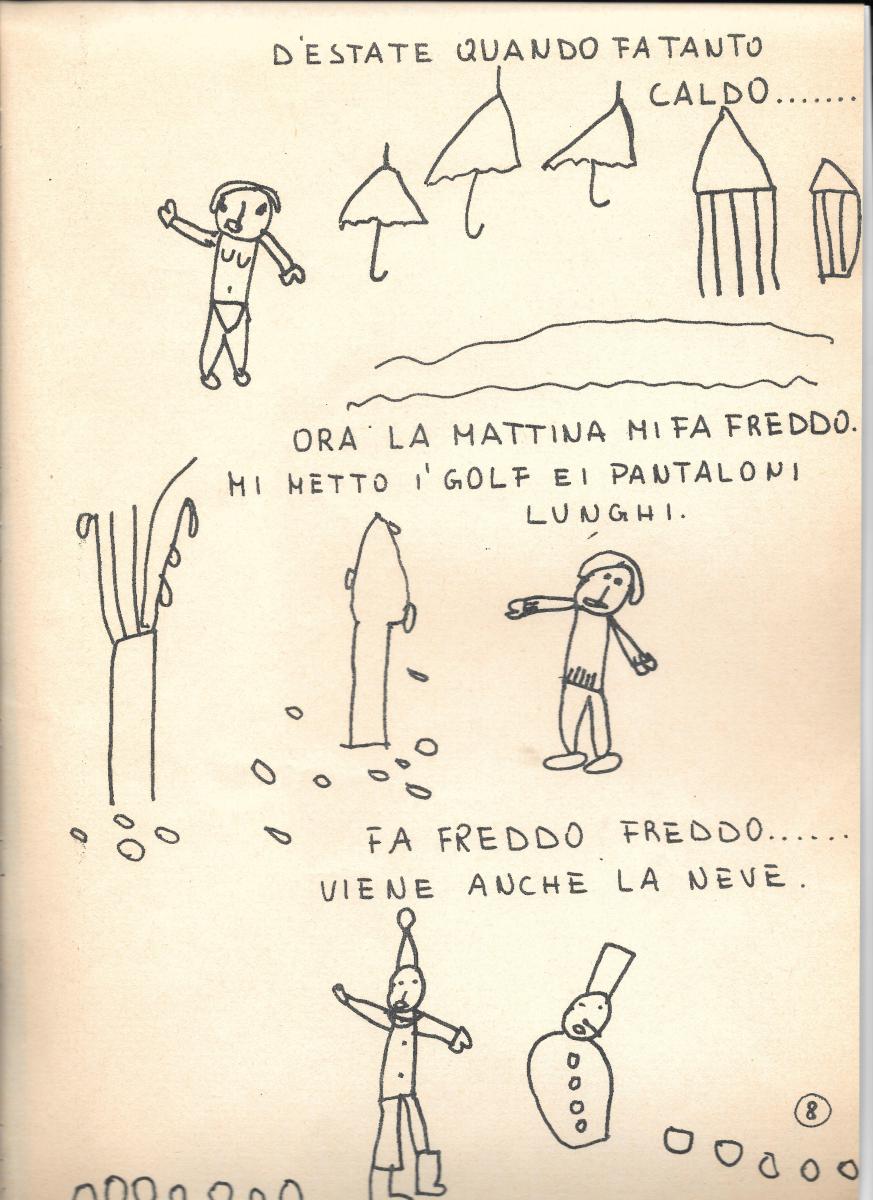 D'ESTATE QUANDO FA TANTO
CALDO.......
ORA LA MATTINA MI FA FREDDO.
MI METTO I' GOLF E I PANTALONI
LUNGHI.
FA FREDDO FREDDO......
VIENE ANCHE LA NEVE.
8